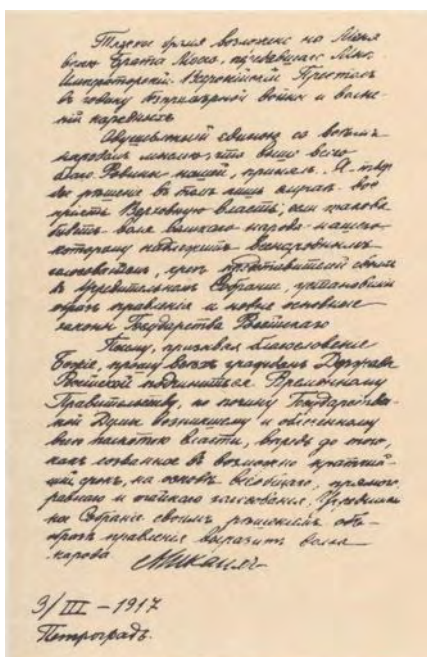 Тяжкое бремя возложено на Меня
волею Брата Моего, передавшаго Мнѣ
Императорскій Всероссійскій Престолъ
въ годину безпримѣрной войны и волне-
ній народныхъ.
Одушевленный единою со всѣмъ
народомъ мыслью, что выше всего
благо Родины нашей, принялъ Я твер-
дое рѣшеніе въ томъ лишь случаѣ вос-
принять Верховную власть, если такова
будетъ воля великаго народа нашего,
которому надлежитъ всенароднымъ
голосованіемъ, чрезъ представителей своихъ
въ Учредительномъ Собраніи, установить
образъ правленія и новые основные
законы Государства Россійскаго
Посему, призывая благословеніе
Божіе, прошу всѣхъ гражданъ Державы
Россійской подчиниться Временному
Правительству, по почину Государствен-
ной Думы возникшему и облеченному
всею полнотою власти, впредь до того,
какъ созванное въ возможно кратчай-
шій срокъ, на основѣ всеобщаго, прямого,
равнаго и тайнаго голосованія, Учредитель-
ное Собраніе своимъ рѣшеніемъ объ
образѣ правленія выразитъ волю
народа.
Михаилъ
3/III – 1917
Петроградъ.